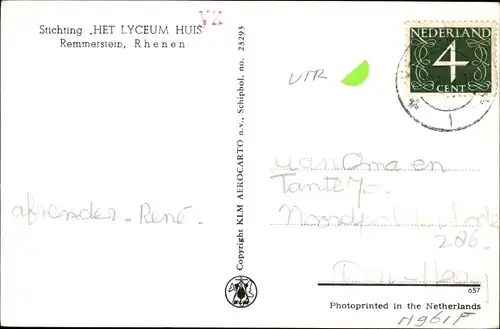 Stichting „HET LYCEUM HUIS"
Remmerstein, Rhenen
VII
afzender - René -
Copyright KLM AEROCARTO n.v., Schiphol. no. 23293
UTR
NEDERLAND
4
CENT
1
aan Oma en
Tante Jo.
286.
Den Haag
657
Photoprinted in the Netherlands